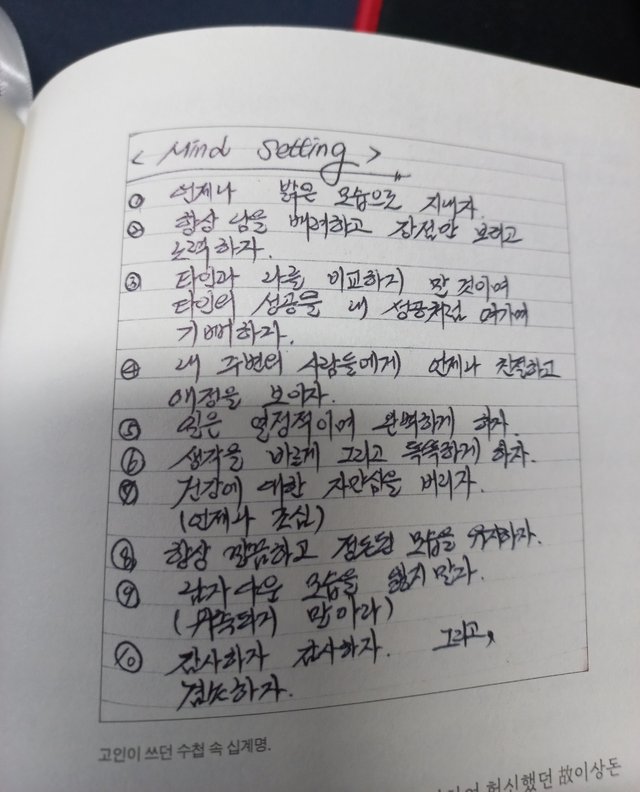 < Mind Setting >
① 언제나 밝은 모습으로 지내자.
② 항상 남을 배려하고 장점만 보려고
노력하자.
③ 타인과 나를 비교하지 말 것이며
타인의 성공을 내 성공처럼 여기며
기뻐하자.
④ 내 주변의 사람들에게 언제나 친절하고
애정을 보이자.
⑤ 일은 열정적이며 완벽하게 하자.
⑥ 생각을 바르게 그리고 똑똑하게 하자.
⑦ 건강에 대한 자만심을 버리자.
(언제나 조심)
⑧ 항상 깔끔하고 정돈된 모습을 유지하자.
⑨ 남자다운 모습을 잃지 말자.
(위축되지 말아라)
⑩ 감사하자 감사하자. 그리고,
겸손하자.
고인이 쓰던 수첩 속 십계명.
헌신했던 故이상돈